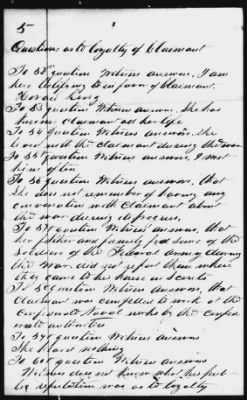 5
Questions as to loyalty of Claimant
To 52d question Witness answers, I am
here testifying in favor of Claimant,
Horace King
To 53 question Witness answers. She has
known Claimant all her life
To 54 question Witness answers. She
lived with the Claimant during the war
To 55th question Witness answers, I met
him often
To 56 question Witness answers, that
She did not remember of having any
conversation with Claimant about
the war during its progress,
To 57 question Witness answers, that
her father and family fed some of the
soldiers of the Federal army during
the War, did not report them where
they came to his house as Scouts
To 58 question Witness answers, that
Claimant was compelled to work at the
Confederate Naval works by the Confed
erate authorities
To 59 question Witness answers
She heard nothing
To 60th question Witness answers
Witness does not know what his pub
lic reputation was as to loyalty